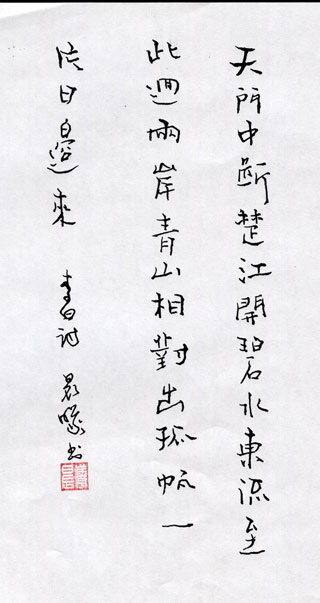 天門中斷楚江開碧水東流至
此迴兩岸青山相對出孤帆一
片日邊來 李白詩 书